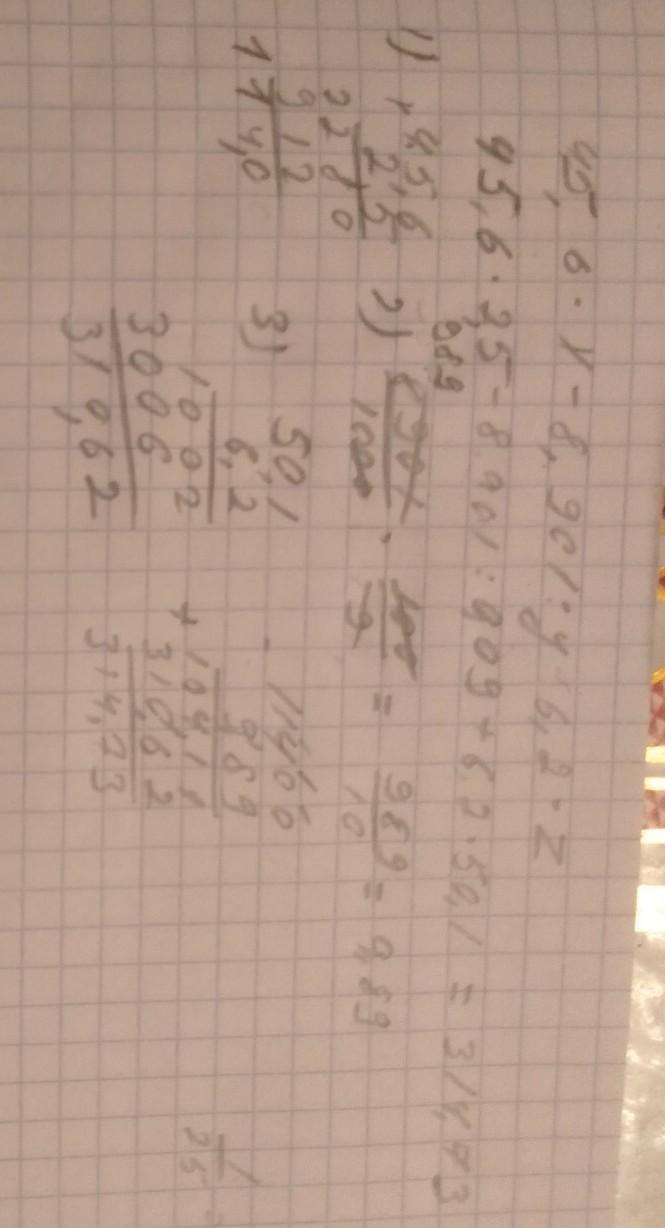 45,6 · X - 8,901 : y + 6,2 · Z
45,6 · 2,5 - 8 901 : 909 + 6 2 · 50,1 = 314,73
1) × 45,6
2,5
2280
912
114,0
2) 8901 / 1000 · 100 / 9 = 989 / 10 = 9,89
989
3) 50,1
6,2
1002
3006
310,62
- 11400
989
+ 10411
310,62
314,73
1 / 25